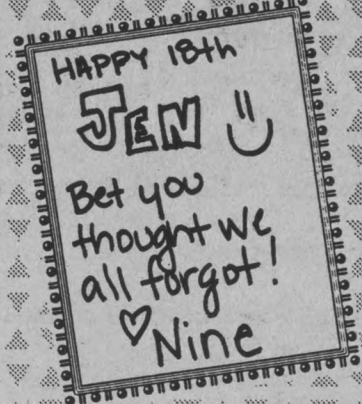 HAPPY 18th
JEN
Bet you
thought we
all forgot!
Nine